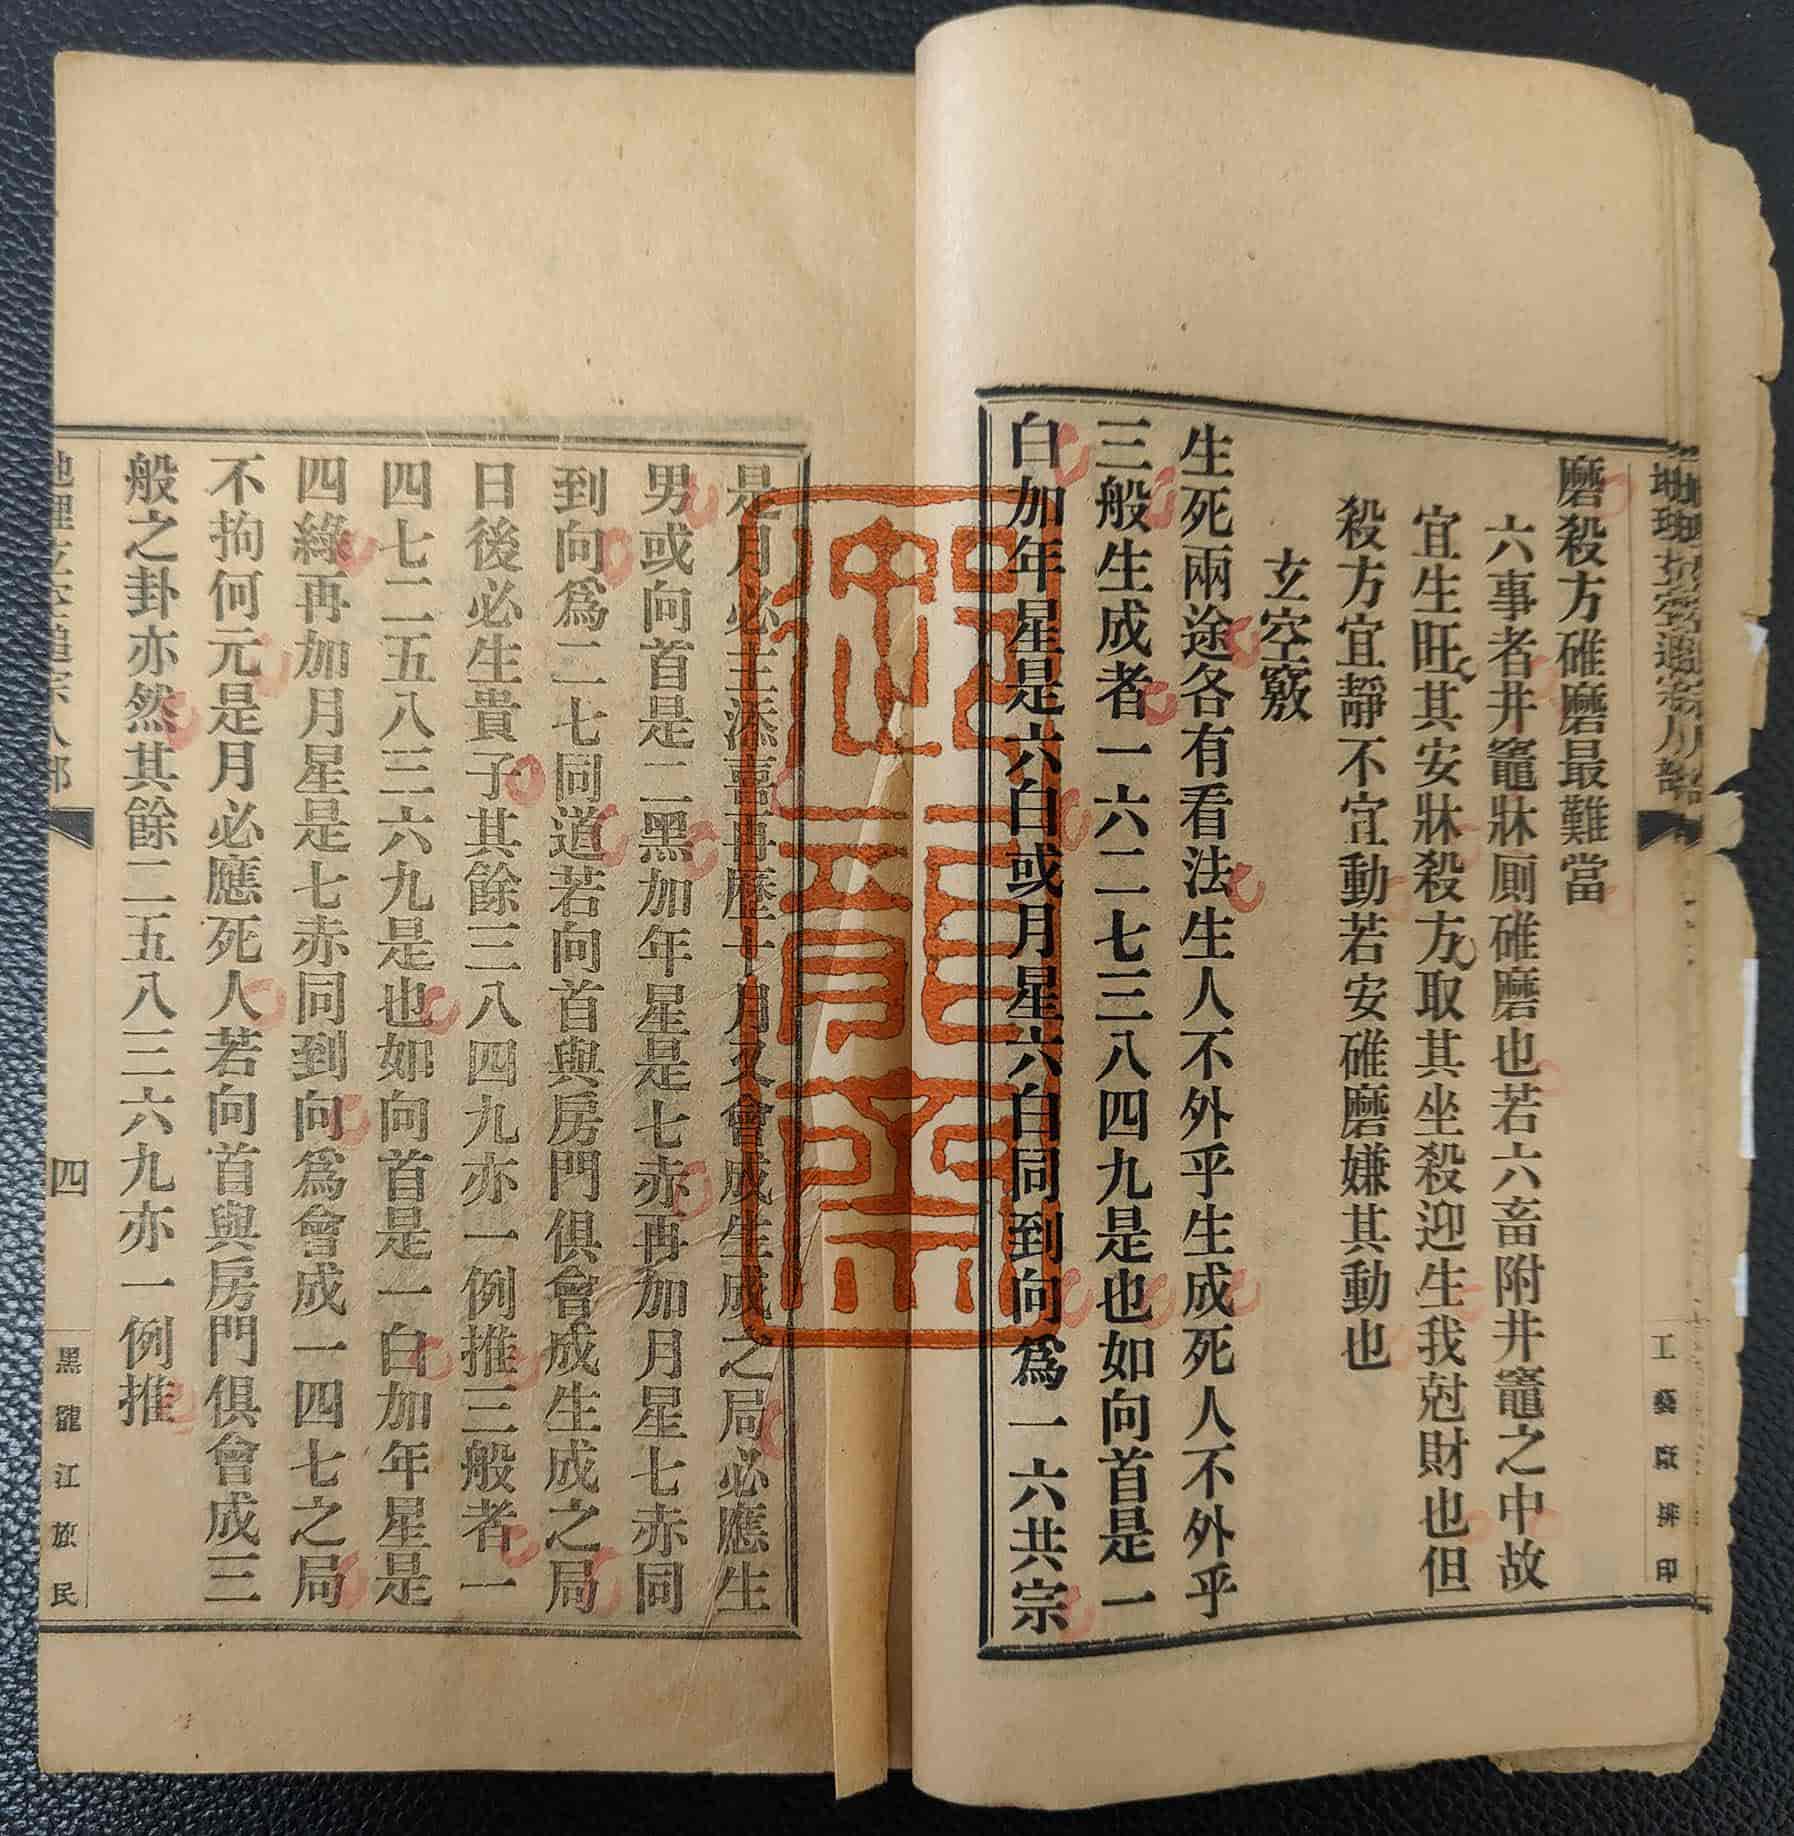 工藝廠排印
磨殺方碓磨最難當
六事者井竈牀厠碓磨也若六畜附井竈之中故
宜生旺其安牀殺方取其坐殺迎生我尅財也但
殺方宜靜不宜動若安碓磨嫌其動也
玄空竅
生死兩途各有看法生人不外乎生成死人不外乎
三般生成者一六二七三八四九是也如向首是一
白加年星是六白或月星六白同到向爲一六共宗
是月必主添喜再歷十月又會成生成之局必應生
男或向首是二黑加年星是七赤再加月星七赤同
到向爲二七同道若向首與房門俱會成生成之局
日後必生貴子其餘三八四九亦一例推三般者一
四七二五八三六九是也如向首是一白加年星是
四綠再加月星是七赤同到向爲會成一四七之局
不拘何元是月必應死人若向首與房門俱會成三
般之卦亦然其餘二五八三六九亦一例推
四
黑龍江旅民